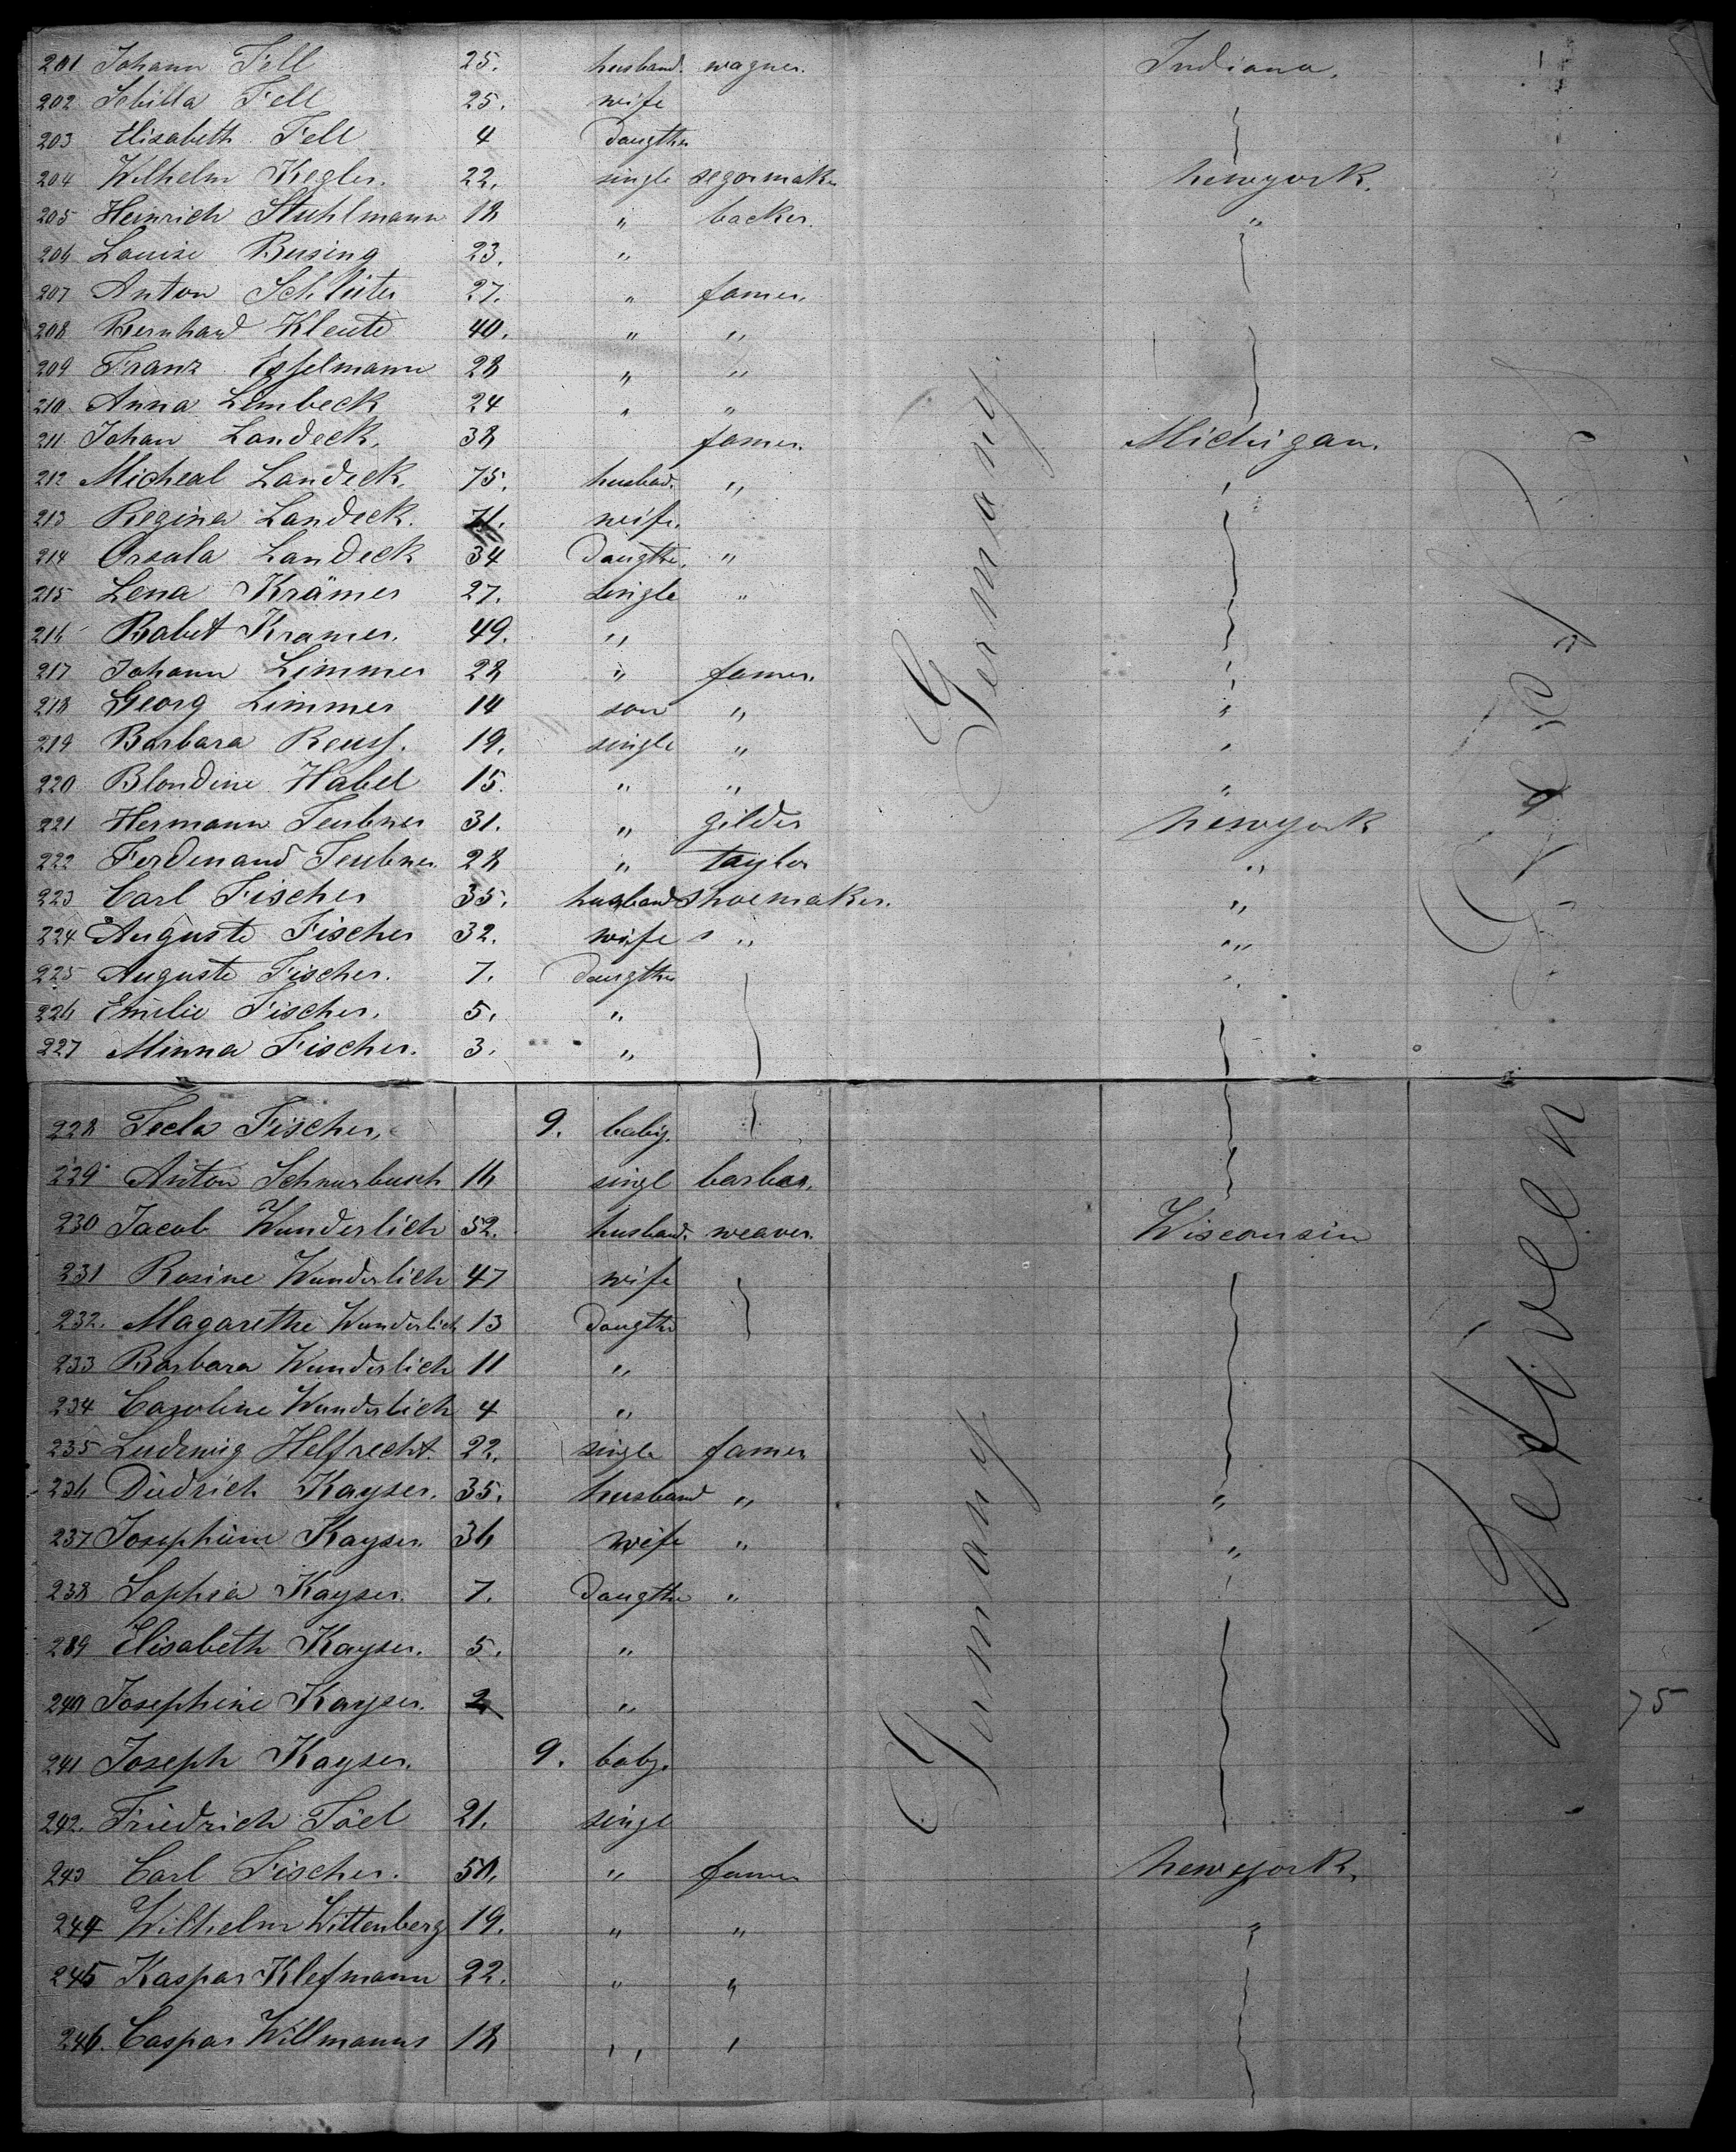 201 Johann Fell 25. husband. wagner. Indiana.
202 Sebilla Fell 25. wife
203 Elisabeth Fell 4 Daugther
204 Wilhelm Kegler. 22. single segormaker newyork.
205 Heinrich Stuhlmann 18 " backer. "
206 Louise Busing 23. "
207 Anton Schluter 27. " famer.
208 Bernhard Kleute 40. " "
209 Franz Esselmann 28 " "
210 Anna Limbeck 24 " "
211 Johan Landeck. 38 famer. Michigan.
212 Micheal Landeck. 75. husbad. " "
213 Regina Landeck. 71. wife.
214 Orsala Landeck 34 Daugther. "
215 Lena Krämer 27. single "
216 Babet Kramer. 49. "
217 Johann Limmer 28 " famer.
218 Georg Limmer 14 son " "
219 Barbara Reuss. 19. single " "
220 Blondine Habel 15. " " "
221 Hermann Teubner 31. " gilder newyork
222 Ferdenand Teubner 28 " taylor "
223 Carl Fischer 35. husband shoemaker. "
224 Auguste Fischer 32. wife " "
225 Auguste Fischer. 7. Daugther "
226 Emilie Fischer. 5. "
227 Minna Fischer. 3. "
Germany
228 Tecla Fischer, 9. baby.
229 Anton Schnurbusch 16 singl barber.
230 Jacob Wunderlich 52. husband. weaver. Wisconsin
231 Rosine Wunderlich 47 wife
232. Magarethe Wunderlich 13 Daugther
233 Barbara Wunderlich 11 "
234 Caroline Wunderlich 4 "
235 Ludewig Helfrecht. 22. single famer
236 Diedrich Kayser. 35. husband " "
237 Josephine Kayser. 36 wife " "
238 Sophia Kayser. 7. Daugther "
239 Elisabeth Kayser. 5. "
240 Josephine Kayser. 2 "
241 Joseph Kayser. 9. baby.
242. Friedrich Töel 21. singl
243 Carl Fischer. 50. " famer newyork.
244 Wilhelm Wittenberg 19. " " "
245 Kaspar Klefmann 22. " "
246. Caspar Willmanns 18 " "
Germany
75